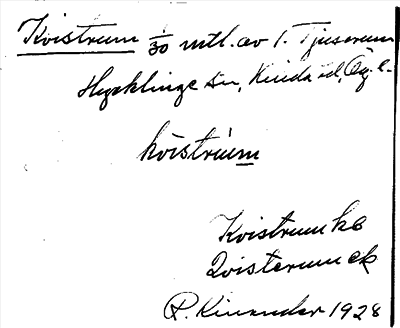 Kvistrum 1/30 mtl. av 1. Tjuserum
Hycklinge sn, Kinda hd, Ög. l.
kvistrùm
Kvistrum kb
Qvisterum ek
R. Kinander 1928